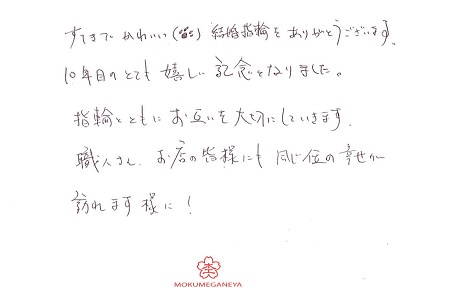 すてきでかわいい(笑)結婚指輪をありがとうございます。
10年目のとても嬉しい記念となりました。
指輪とともにお互いを大切にしていきます。
職人さん、お店の皆様にも同じ位の幸せが
訪れます様に!
MOKUMEGANEYA